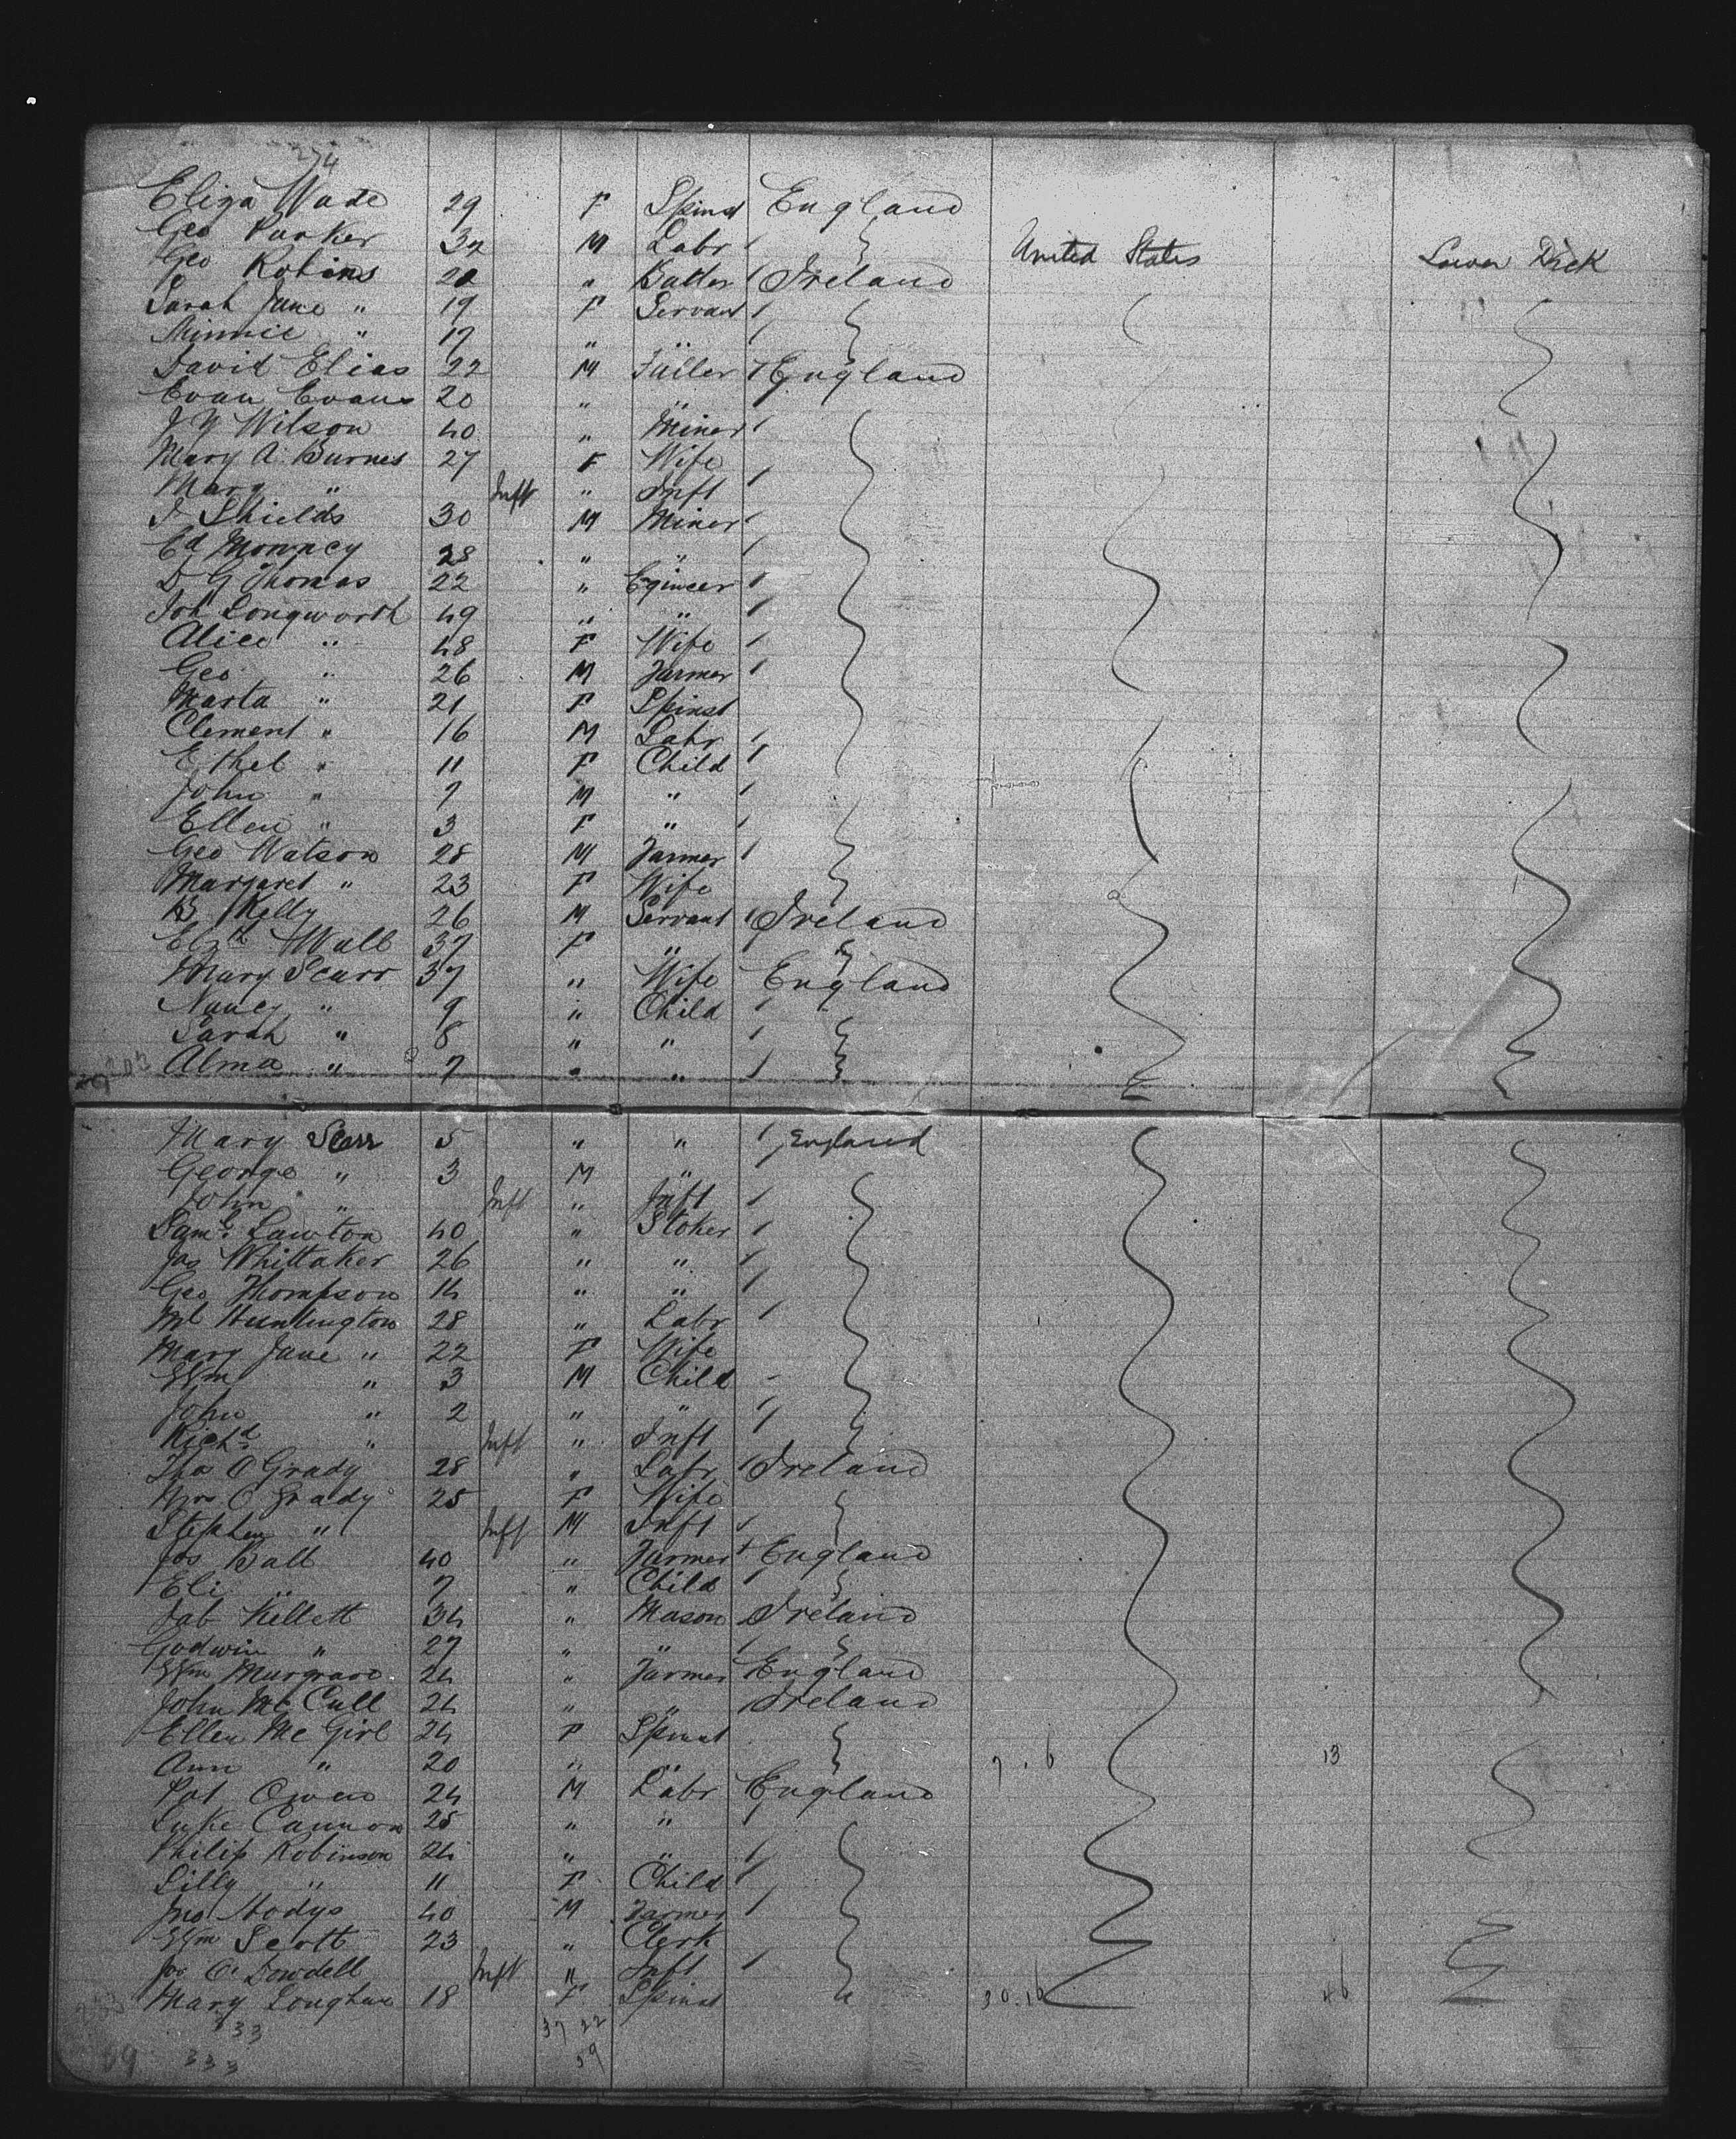 274
Eliza Wade 29 F Spinst England
Geo Parker 32 M Labr United States Lower Deck
Geo Robins 22 " Butler Ireland
Sarah Jane " 19 F Servant
Minnie " 17 " "
David Elias 22 M England
Evan Evans 20 " "
J Y Wilson 40 " Miner
Mary A. Burnes 27 F Wife
Mary " Inft " Inft
J Shields 30 M Miner
Ed 28 " "
D G Thomas 22 " Egineer
Joh Longworth 49 " "
Alice " 48 F Wife
Geo " 26 M Farmer
Marta " 21 F Spinst
Clement " 16 M Labr
Ethel " 11 F Child
John " 7 M "
Ellen " 3 F "
Geo Watson 28 M Farmer
Margaret " 23 F Wife
B Kelly 26 M Servant Ireland
Elzth Wall 37 F "
Mary Scarr 37 " Wife England
Nancy " 9 " Child
Sarah " 8 " "
Alma " 7 " "
Mary Scarr 5 " " England
George " 3 M "
John " Inft " Inft
Saml Lawton 40 " Stoker
Jas Whittaker 26 " "
Geo Thompson 14 " "
Ml Huntington 28 " Labr
Mary Jane " 22 F Wife
Wm " 3 M Child
John " 2 " "
Richd " Inft " Inft
Tho O Grady 28 " Labr Ireland
Mrs O Grady 25 F Wife
Stephen " Inft M Inft
Jos Ball 40 " Farmer England
Eli " 7 " Child
Jab Kellett 34 " Mason Ireland
Godwin " 27 " "
Wm Murgrave 24 " Farmer England
John Mc Cull 24 " " Ireland
Ellen Mc Girl 24 F Spinst
Ann " 20 " " 7.6 13
Pat Owen 24 M Labr England
Luke Cannon 25 " "
Philip Robinson 24 " "
Lilly " 11 F Child
Jno Hodys 40 M Farmer
Wm Scott 23 " Clerk
Jos O'Dowdell Inft " Inft
Mary Loughlan 18 F Spinst 30.16 46
333 37 22
59 333 59